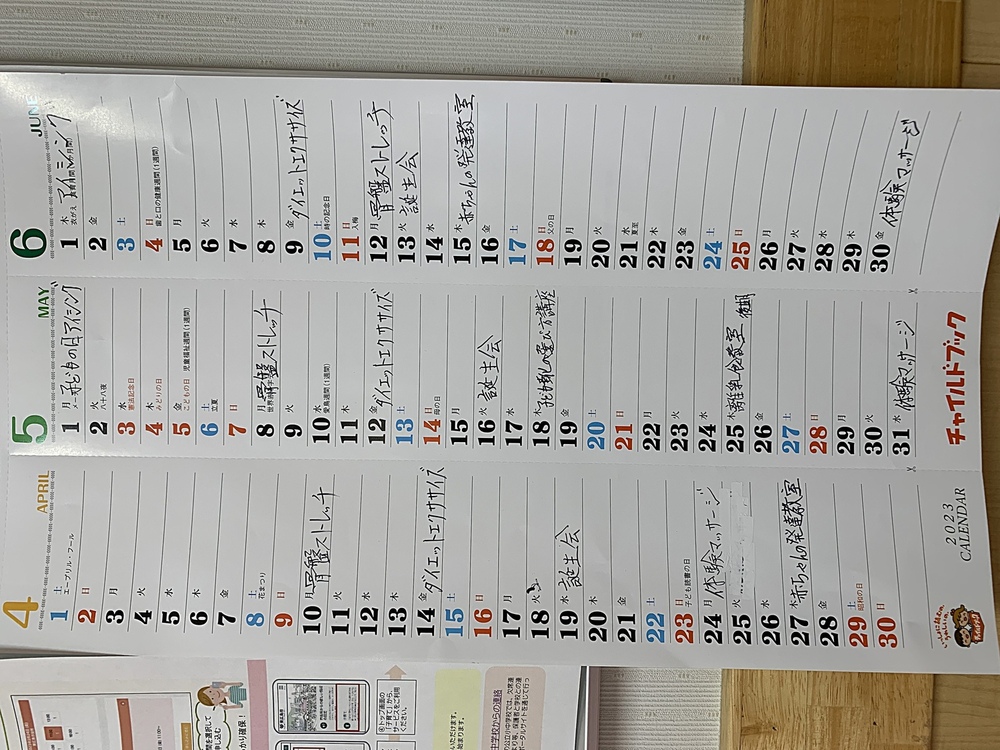 4 APRIL
1 土 エープリル・フール
2 日
3 月
4 火
5 水
6 木
7 金
8 土 花まつり
9 日
10 月 骨盤ストレッチ
11 火
12 水
13 木
14 金 ダイエットエクササイズ
15 土
16 日
17 月
18 火
19 水 誕生会
20 木
21 金
22 土
23 日 子ども読書の日
24 月 体験マッサージ
25 火
26 水
27 木 赤ちゃんの発達教室
28 金
29 土 昭和の日
30 日
2023
CALENDAR
5 MAY
1 月 メー
2 火 八十八夜
3 水 憲法記念日
4 木 みどりの日
5 金 こどもの日 児童福祉週間(1週間)
6 土 立夏
7 日
8 月 骨盤ストレッチ
9 火
10 水 愛鳥週間(1週間)
11 木
12 金 ダイエットエクササイズ
13 土
14 日 母の日
15 月
16 火 誕生会
17 水
18 木
19 金
20 土
21 日
22 月
23 火
24 水
25 木 離乳食教室
26 金
27 土
28 日
29 月
30 火
31 水 体験マッサージ
チャイルドブック
6 JUNE
1 木 衣がえ アイシング
2 金
3 土
4 日 歯と口の健康週間(1週間)
5 月
6 火
7 水
8 木
9 金 ダイエットエクササイズ
10 土 時の記念日
11 日 入梅
12 月 骨盤ストレッチ
13 火 誕生会
14 水
15 木 赤ちゃんの発達教室
16 金
17 土
18 日 父の日
19 月
20 火
21 水 夏至
22 木
23 金
24 土
25 日
26 月
27 火
28 水
29 木
30 金 体験マッサージ
⑥トップ画面の
「子育て」から、
サービスをご利用
ください。
中学校からの連絡